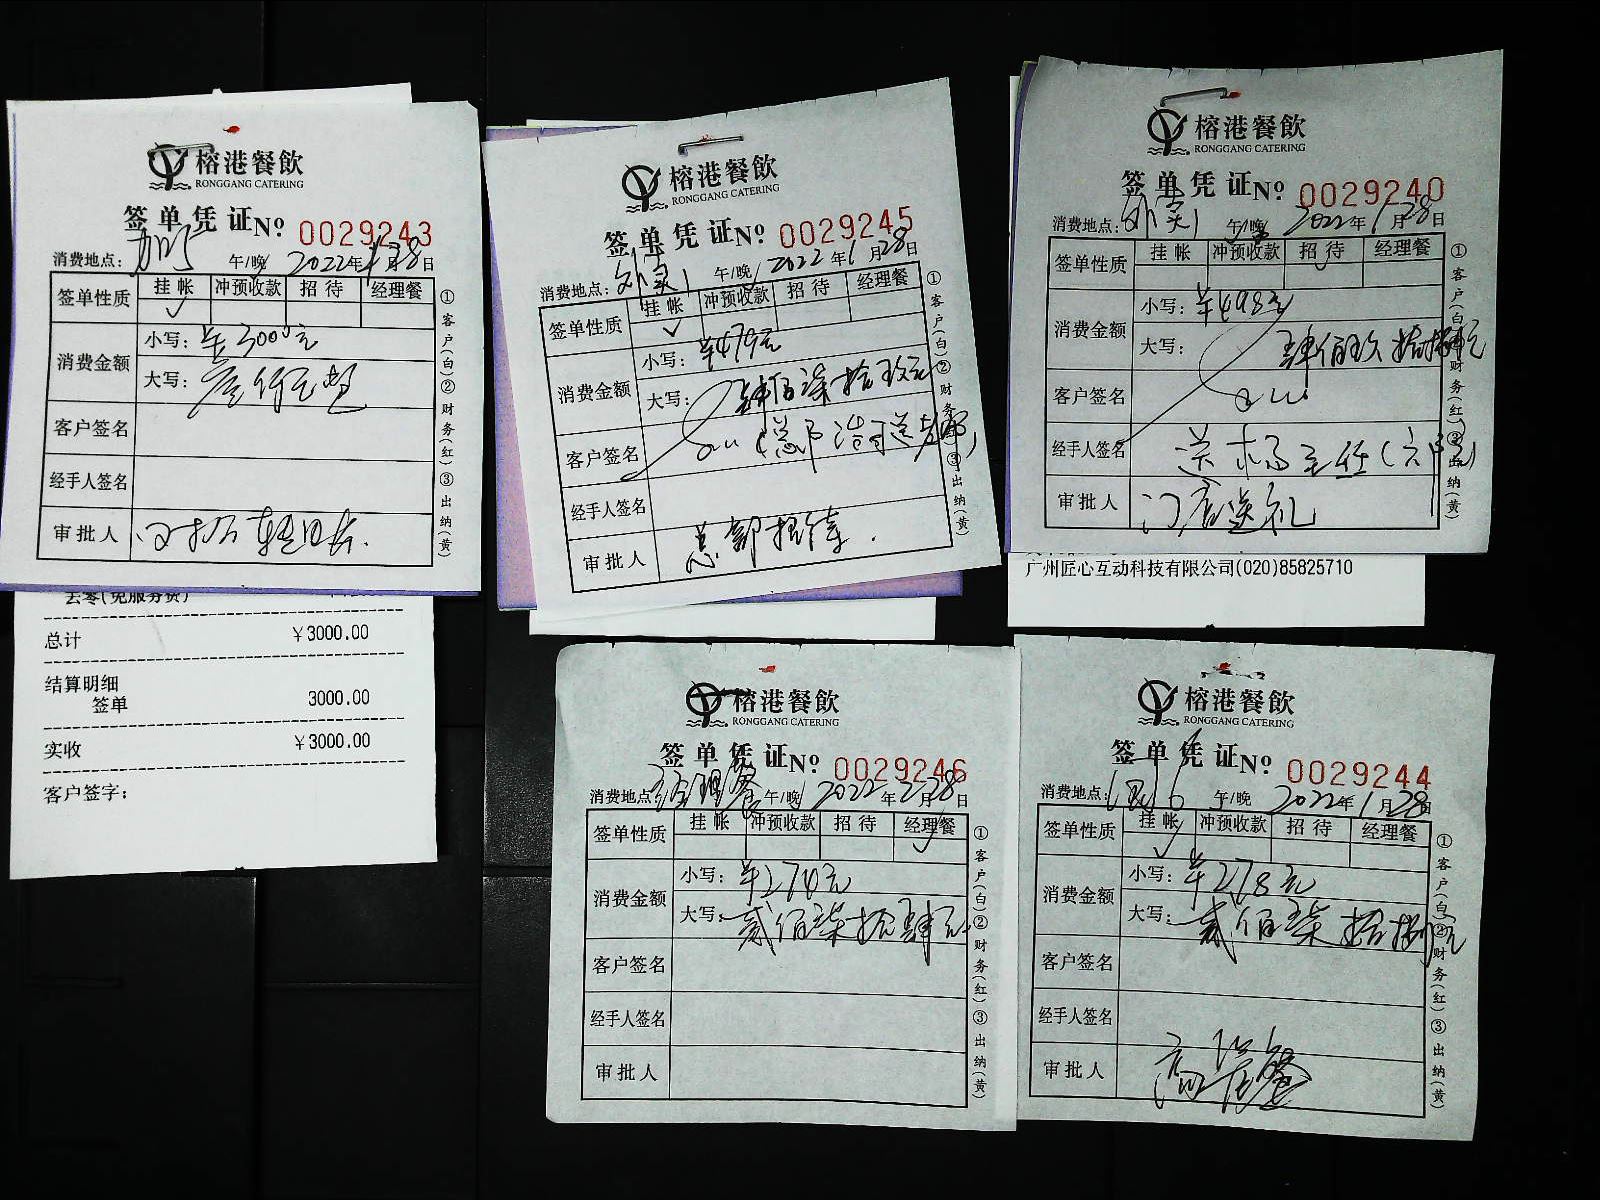 榕港餐飲
RONGGANG CATERING
签单凭证 No 0029243
消费地点： 午/晚 2022年1月28日
签单性质 挂帐 冲预收款 招待 经理餐
✓
消费金额 小写：¥3000元
大写：叁仟元整
客户签名
经手人签名
审批人
①客户(白)②财务(红)③出纳(黄)
去零(免服务费)
总计 ￥3000.00
结算明细
签单 3000.00
实收 ￥3000.00
客户签字：
榕港餐飲
RONGGANG CATERING
签单凭证 No 0029245
消费地点：外卖1 午/晚 2022年1月28日
签单性质 挂帐 冲预收款 招待 经理餐
✓
消费金额 小写：¥479元
大写：肆佰柒拾玖元
客户签名
经手人签名
审批人 总部招待.
①客户(白)②财务(红)③出纳(黄)
榕港餐飲
RONGGANG CATERING
签单凭证 No 0029240
消费地点：外卖1 午/晚 2022年1月28日
签单性质 挂帐 冲预收款 招待 经理餐
✓
消费金额 小写：¥498元
大写：肆佰玖拾捌元
客户签名
经手人签名 送杨主任
审批人 门店送礼
①客户(白)②财务(红)③出纳(黄)
广州匠心互动科技有限公司(020)85825710
榕港餐飲
RONGGANG CATERING
签单凭证 No 0029246
消费地点：经理餐 午/晚 2022年2月28日
签单性质 挂帐 冲预收款 招待 经理餐
✓
消费金额 小写：¥274元
大写：贰佰柒拾肆元
客户签名
经手人签名
审批人
①客户(白)②财务(红)③出纳(黄)
榕港餐飲
RONGGANG CATERING
签单凭证 No 0029244
消费地点： 午/晚 2022年1月28日
签单性质 挂帐 冲预收款 招待 经理餐
✓
消费金额 小写：¥278元
大写：贰佰柒拾捌元
客户签名
经手人签名
审批人
①客户(白)②财务(红)③出纳(黄)